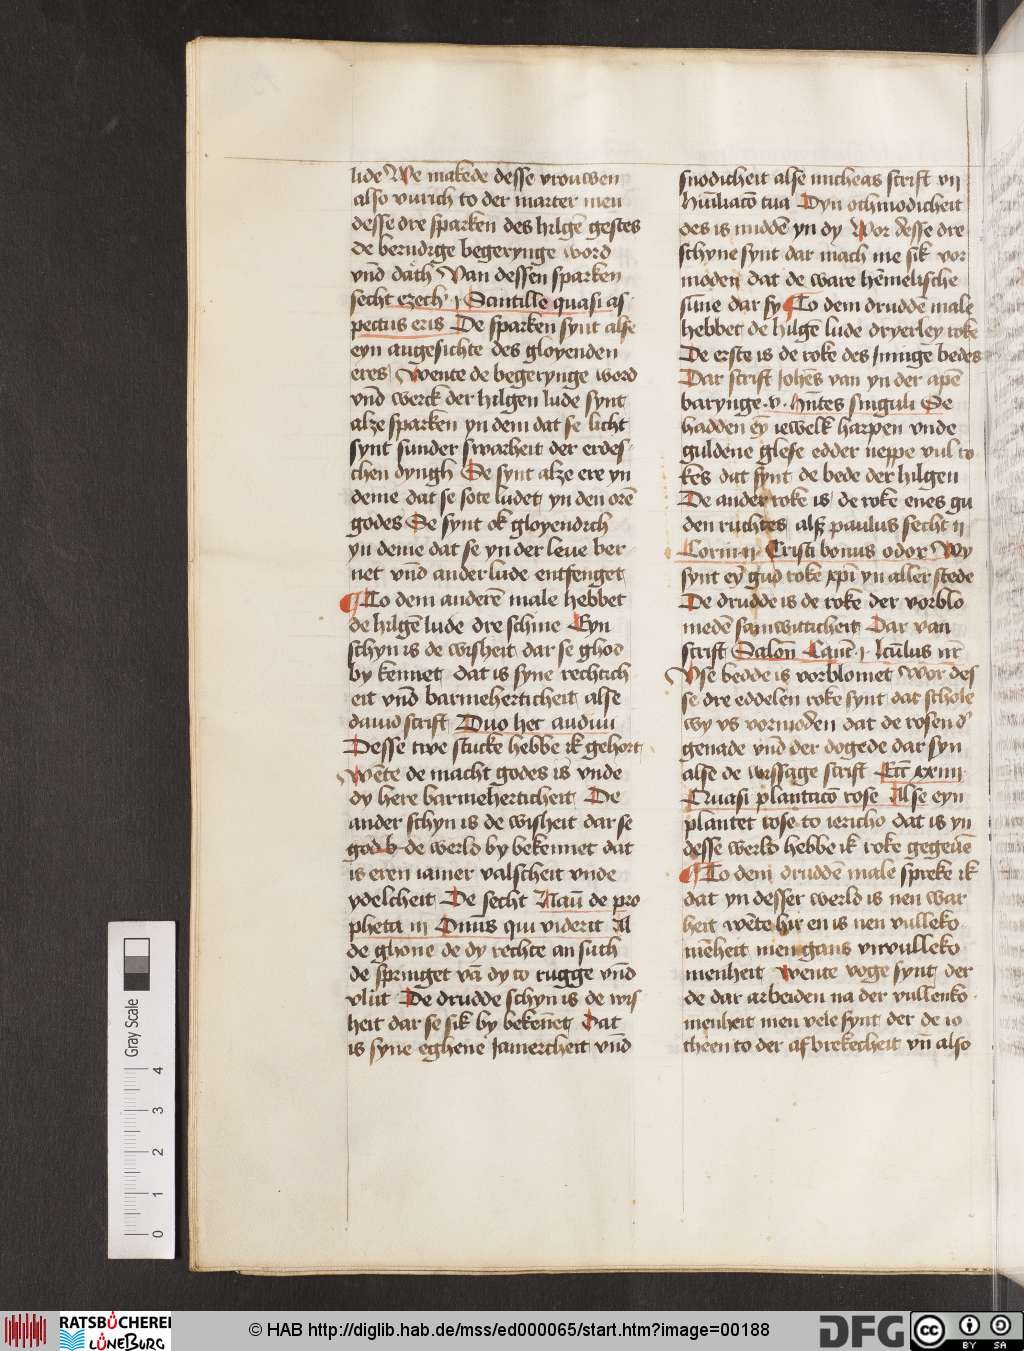 lude We makede desse vrouwen
also vurich to der marter men
desse dre sparken des hilgē gestes
de berndige begerynge word
vnd dath Van dessen sparken
secht ezech' i Scintille quasi as
pectus eris De sparken synt alse
eyn angesichte des gloyenden
eres Wente de begerynge word
vnd werck der hilgen lude synt
alze sparken yn dem dat se licht
synt sunder swarheit der erdes
chen dyngh Se synt alze ere yn
deme dat se sote ludet yn den orē
godes Se synt ok gloyendich
yn deme dat se yn der leue ber
net vnd ander lude entfenget
¶To dem anderē male hebbet
de hilgē lude dre schine Eyn
schyn is de wisheit dar se ghod
by kennet dat is syne rechtich
eit vnd barmeherticheit alse
dauid scrift Duo hec audiui
Desse twe stucke hebbe ik gehort
Wēte de macht godes is vnde
dy here barmeherticheit De
ander schyn is de wisheit dar se
god b de werld by bekennet dat
is eren iamer valscheit vnde
ydelcheit De secht Naū de pro
pheta iii Omīs qui viderit Al
de ghone de dy rechte an suth
de springet vā dy to rugge vnd
vlut De drudde schyn is de wis
heit dar se sik by bekēnet Dat
is syne eghene Jamercheit vnd
snodicheit alse micheas scrift vii
Humiliacō tua Dyn othmodicheit
des is middē yn dy Wor desse dre
schyne synt dar mach me sik vor
moden dat de ware hēmelische
sūne dar sy ¶To dem druddē male
hebbet de hilgē lude dryerley roke
De erste is de roke des Innigē bedes
Dar scrift Johēs van yn der apē
barynge v Hntes singuli Se
hadden ey iewelk harpen vnde
guldene glese edder neppe vul ro
kes dat synt de bede der hilgen
De ander roke is de roke enes gu
den ruchtes als paulus secht ii
Corin ii Cristi bonus odor Wy
synt ey gud roke xpī yn aller stede
De drudde is de roke der vorblo
medē samwitticheit Dar van
scrift Salon Cant i lctulus nr
Vse bedde is vorblomet Wor des
se dre eddelen roke synt dat schole
wy vs vormoden dat de rosen d'
genade vnd der dogede dar syn
alse de wissage scrift Ecc xxiiii
Quasi plantacō rose Alse eyn
plantet rose to iericho dat is yn
desse werld hebbe ik roke gegeuē
¶To dem druddē male spreke ik
dat yn desser werld is nen war
heit wēte hir en is nen vulleko
mēheit men gans vnvulleko
menheit Wente voge synt der
de dar arbeiden na der vullenko
menheit men vele synt der de io
theen to der afbrekecheit vn also
Gray Scale
4
3
2
1
0
RATSBÜCHEREI
LÜNEBURG
© HAB http://diglib.hab.de/mss/ed000065/start.htm?image=00188
DFG
cc
BY SA